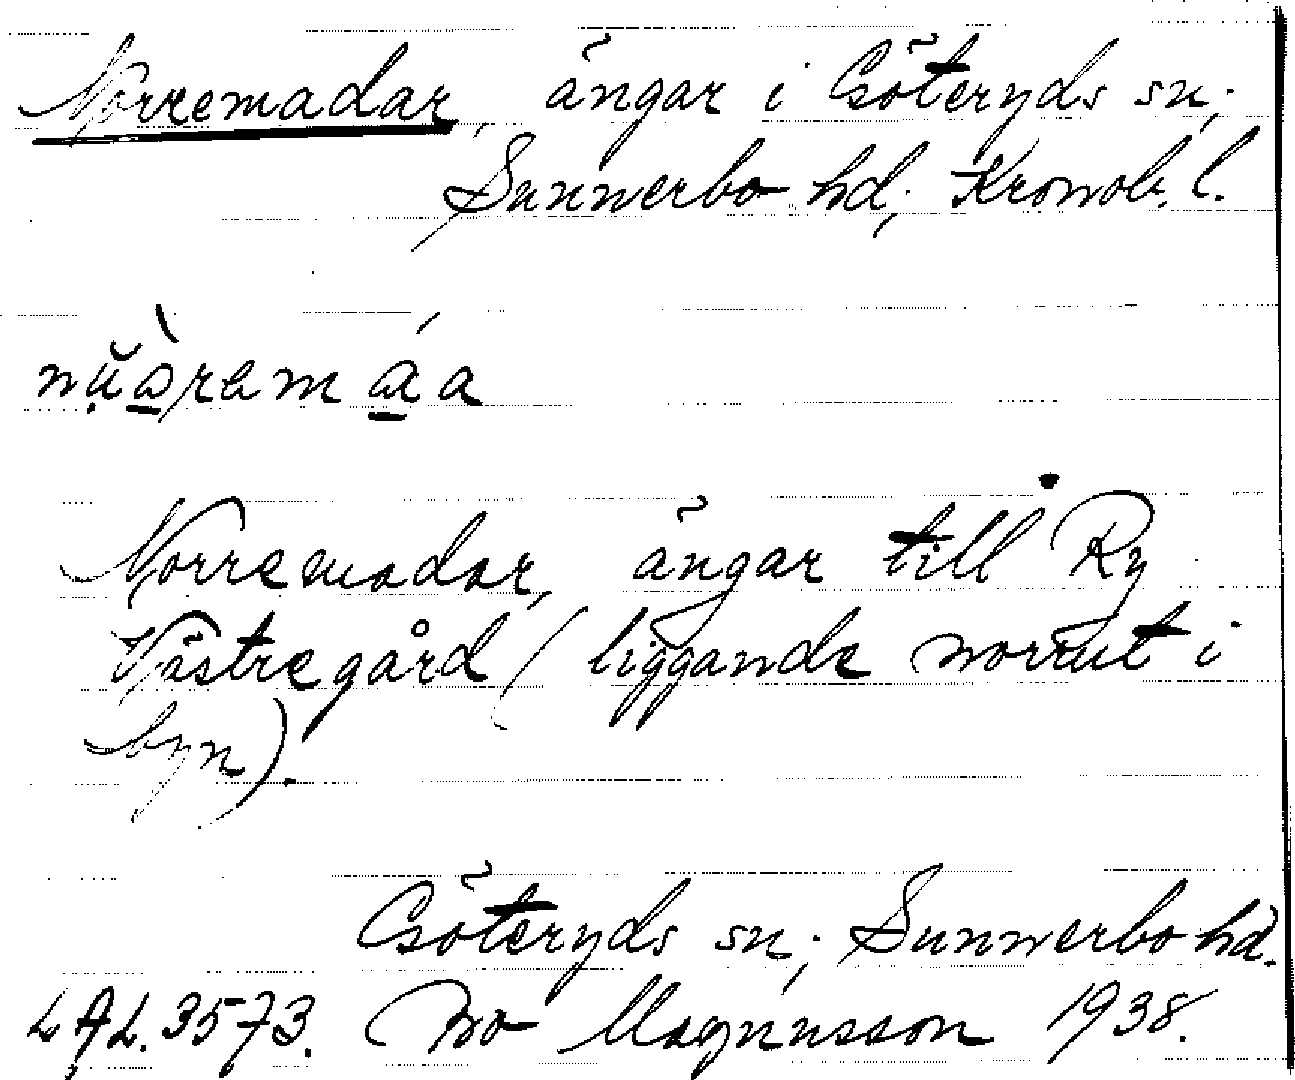 Norremadar, ängar i Göteryds sn;
Sunnerbo hd; Kronob. l.
Norremadar, ängar till Ry
Västregård (liggande norrut i
byn).
Göteryds sn; Sunnerbo hd.
LAL. 3573. Bo Magnusson 1938.